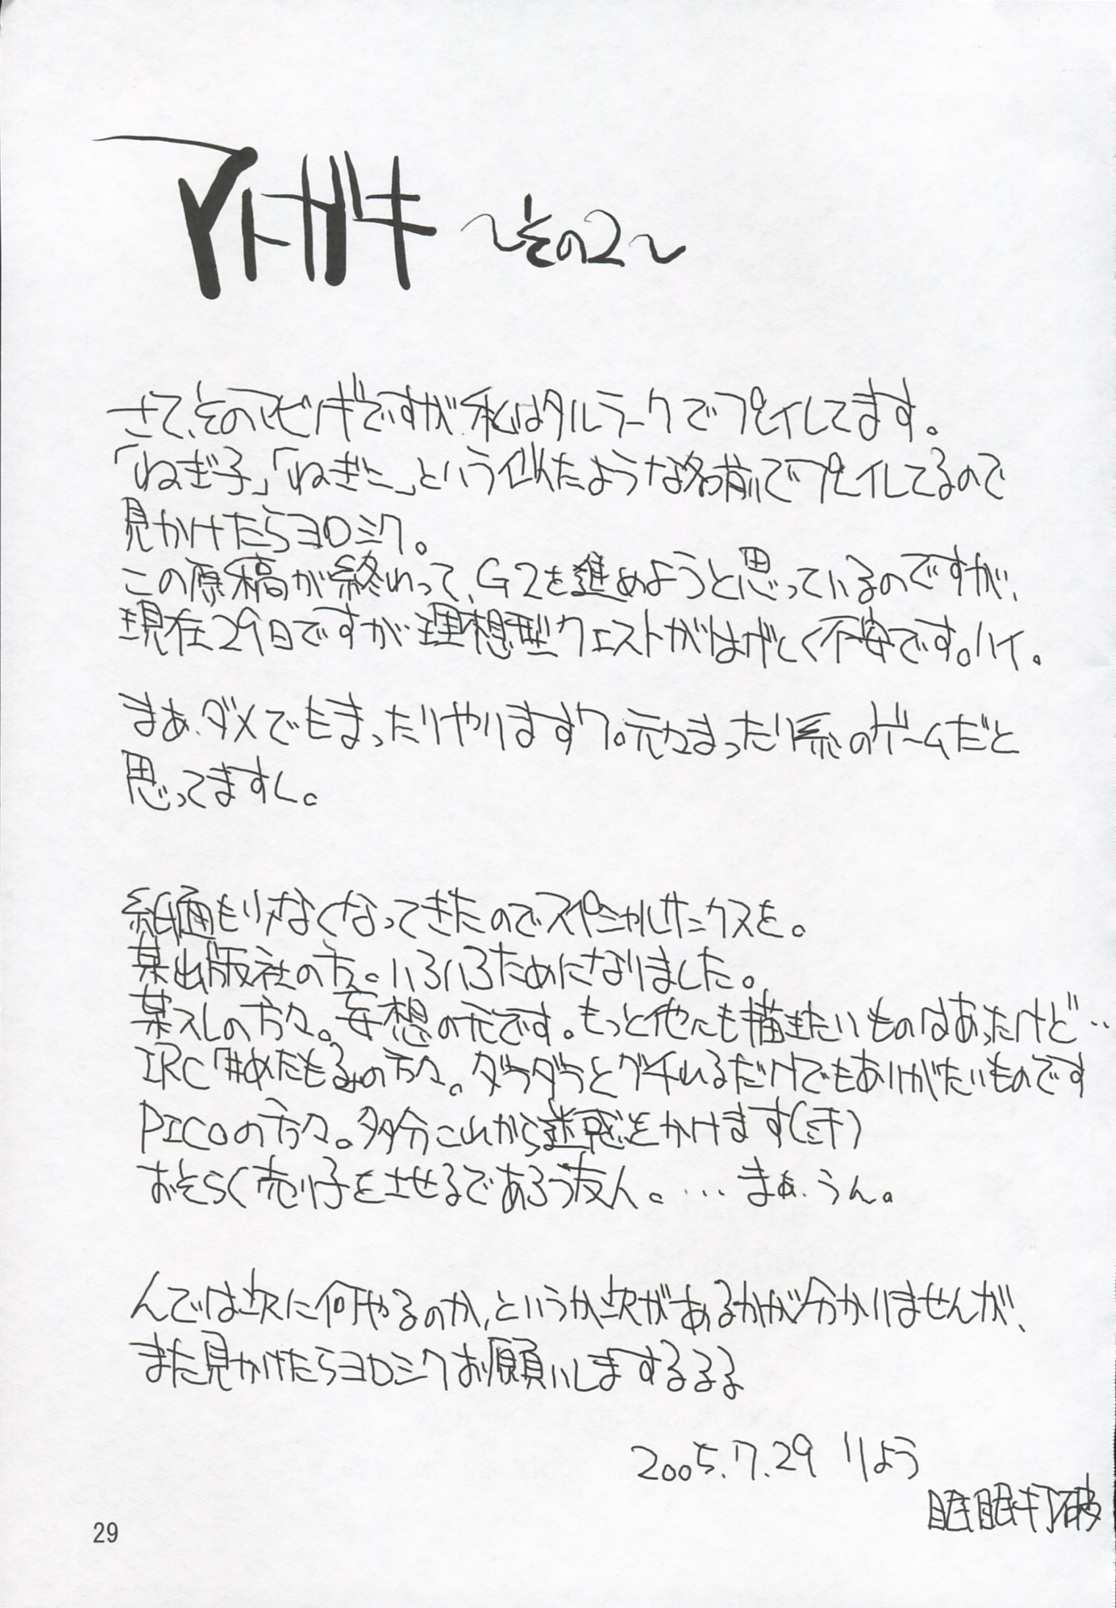 アトガキ ～その2～
さて、そのマビノギですが、私はタルラークでプレイしてます。
「ねぎ子」「ねぎこ」という似たような名前でプレイしてるので
見かけたらヨロシク。
この原稿が終わって、G2を進めようと思っているのですが、
現在29日ですが理想型クエストがはげしく不安です。ハイ。
まぁ、ダメでもまったりやりますワ。元々まったり系のゲームだと
思ってますし。
紙面も少なくなってきたのでスペシャルサンクスを。
某出版社の方。いろいろためになりました。
某スレの方々。妄想の元です。もっと他にも描きたいものはあったけど‥
IRC「#めたもるの方々。ダラダラとグチれるだけでもありがたいものです
PICOの方々。多分これから迷惑をかけます(汗)
おそらく売り子をさせるであろう友人。…まぁ、うん。
んでは次に何やるのか、というか次があるかが分かりませんが、
また見かけたらヨロシクお願いしまするるる
2005.7.29 りょう
眠眠打破
29